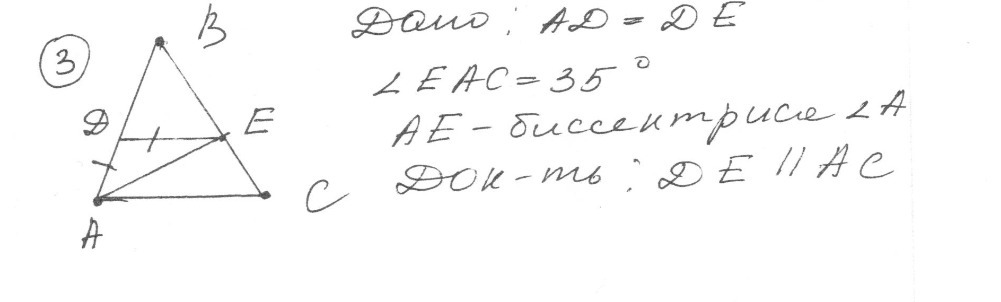 3
B
D
E
A
C
Дано: AD = DE
∠EAC = 35°
AE - биссектриса ∠A
Док-ть: DE || AC